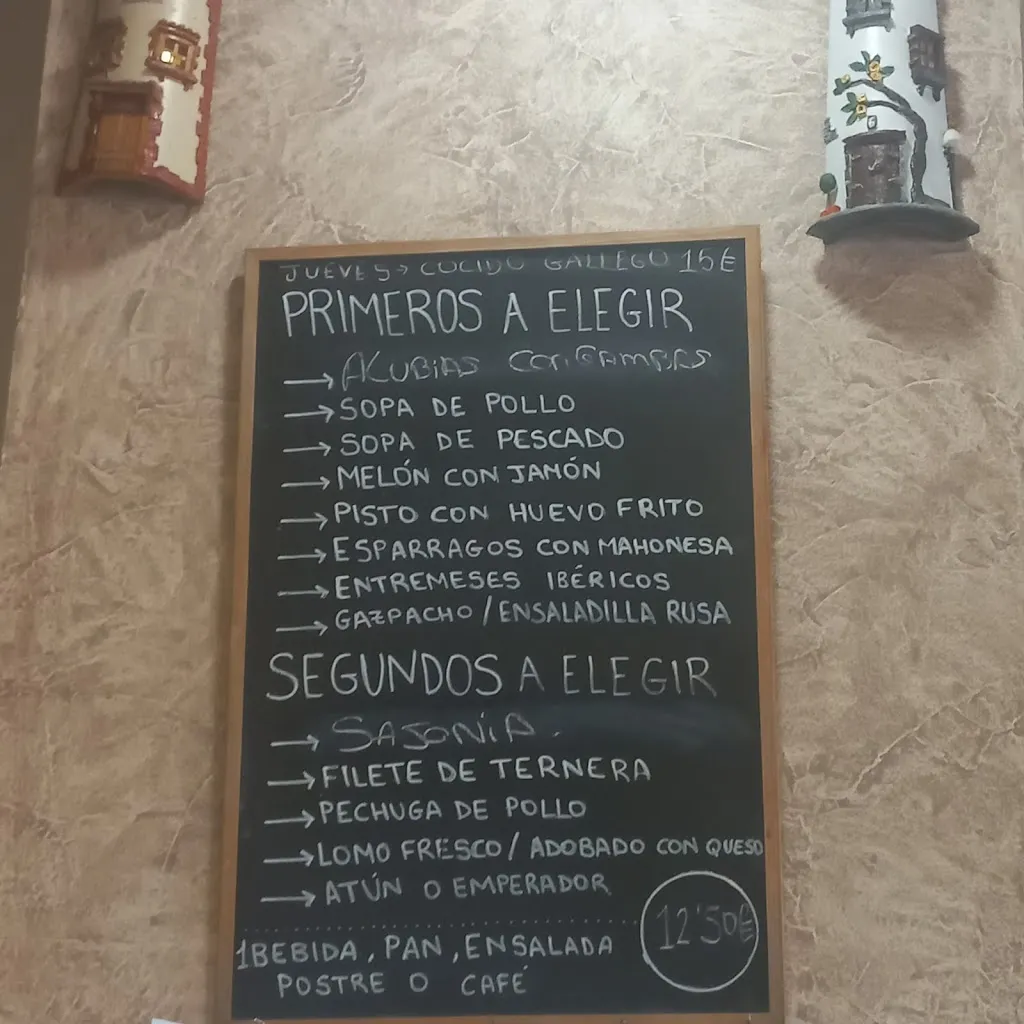 JUEVES→ COCIDO GALLEGO 15€
PRIMEROS A ELEGIR
→ ALUBIAS CON GAMBAS
→ SOPA DE POLLO
→ SOPA DE PESCADO
→ MELÓN CON JAMÓN
→ PISTO CON HUEVO FRITO
→ ESPARRAGOS CON MAHONESA
→ ENTREMESES IBÉRICOS
→ GAZPACHO / ENSALADILLA RUSA
SEGUNDOS A ELEGIR
→ SAJONIA.
→ FILETE DE TERNERA
→ PECHUGA DE POLLO
→ LOMO FRESCO / ADOBADO CON QUESO
→ ATÚN O EMPERADOR
12'50€
1BEBIDA, PAN, ENSALADA
POSTRE O CAFÉ